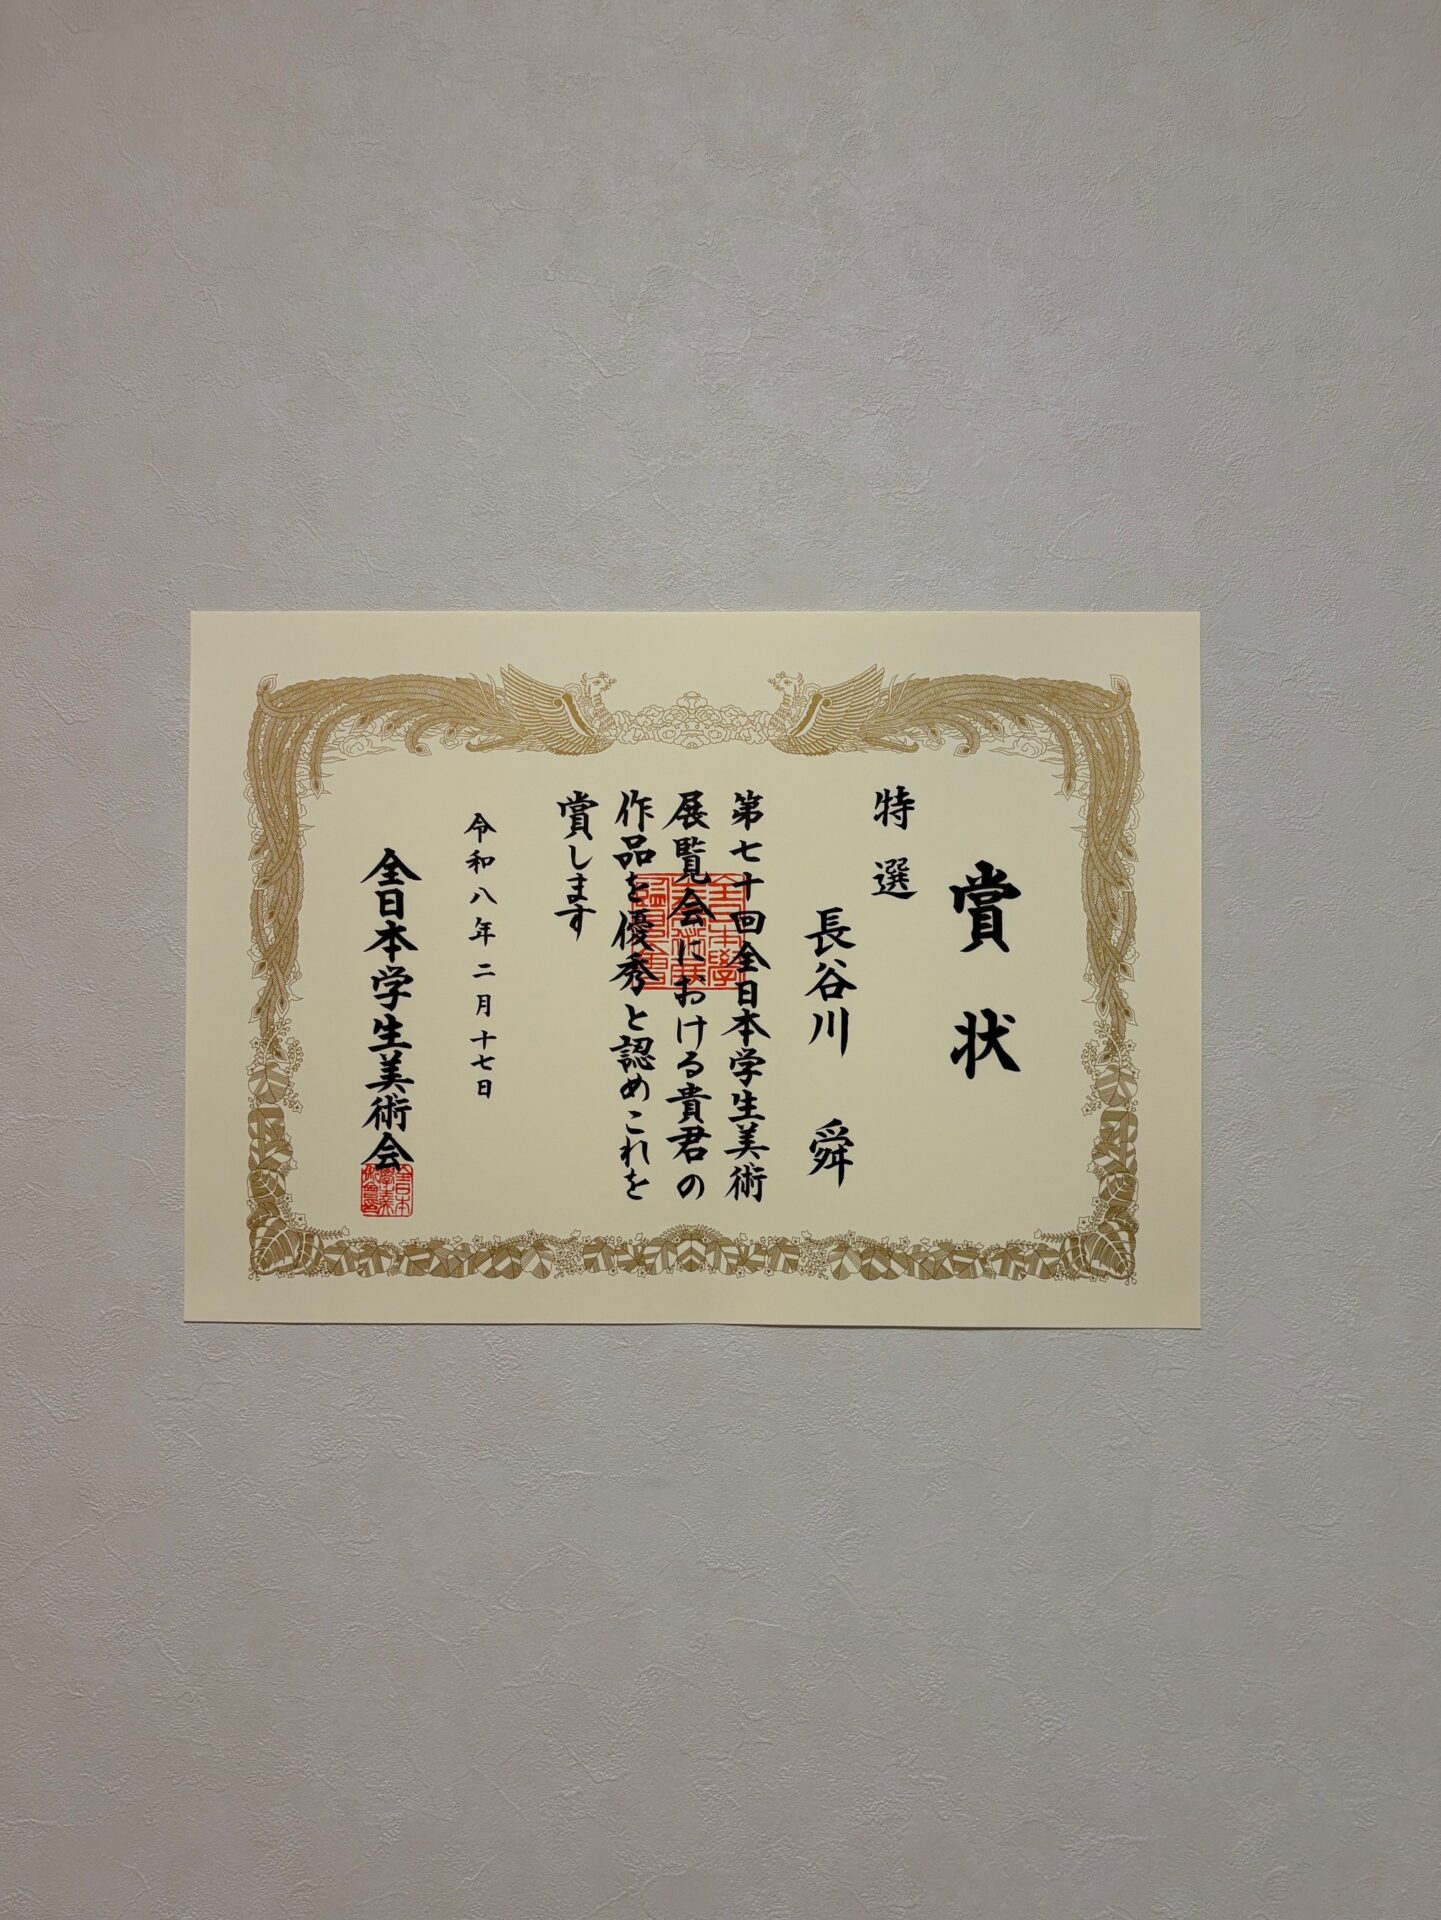 賞状
特選
長谷川 舜
第七十回全日本学生美術
展覧会における貴君の
作品を優秀と認めこれを
賞します
令和八年二月十七日
全日本学生美術会